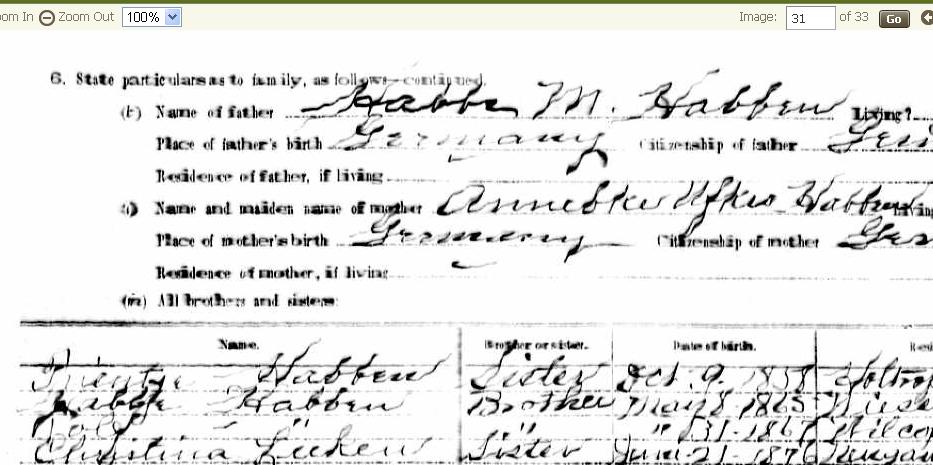 om In Zoom Out 100% Image: 31 of 33 Go
6. State particulars as to family, as follows—continued.
(k) Name of father Habbe M. Habben Living?
Place of father's birth Germany Citizenship of father Ger
Residence of father, if living
(l) Name and maiden name of mother Annebke Ufkes Habben Living
Place of mother's birth Germany Citizenship of mother Ger
Residence of mother, if living
(m) All brothers and sisters:
Name. Brother or sister. Date of birth. Resi
Trientje Habben Sister Oct. 9. 1858 Holtrop
Habbe Habben Brother May 8 1865
" " 31 - Wilcox
Christina Lücken Sister June 21 - 187